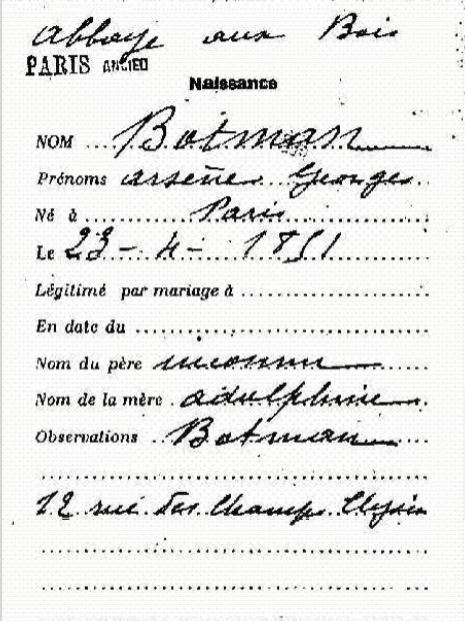 Abbaye aux Bois
PARIS ANCIEN
Naissance
NOM Botman
Prénoms arsène Georges
Né à Paris
Le 23 - 4 - 1851
Légitimé par mariage à
En date du
Nom du père inconnu
Nom de la mère adolphine
Observations Botman
12 rue des Champs Elysées